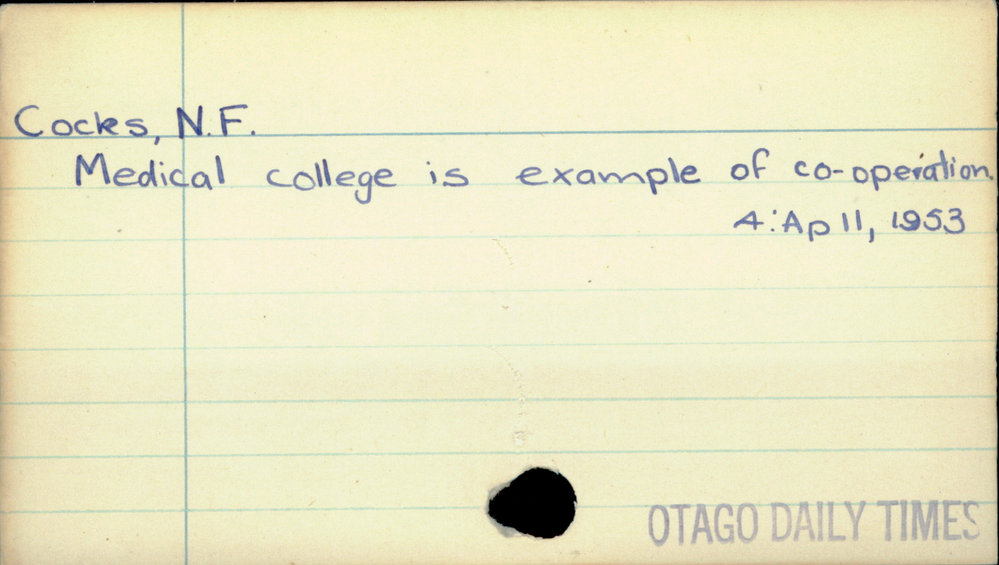 Cocks, N.F.
Medical college is example of co-operation.
4:Ap 11, 1953
OTAGO DAILY TIMES